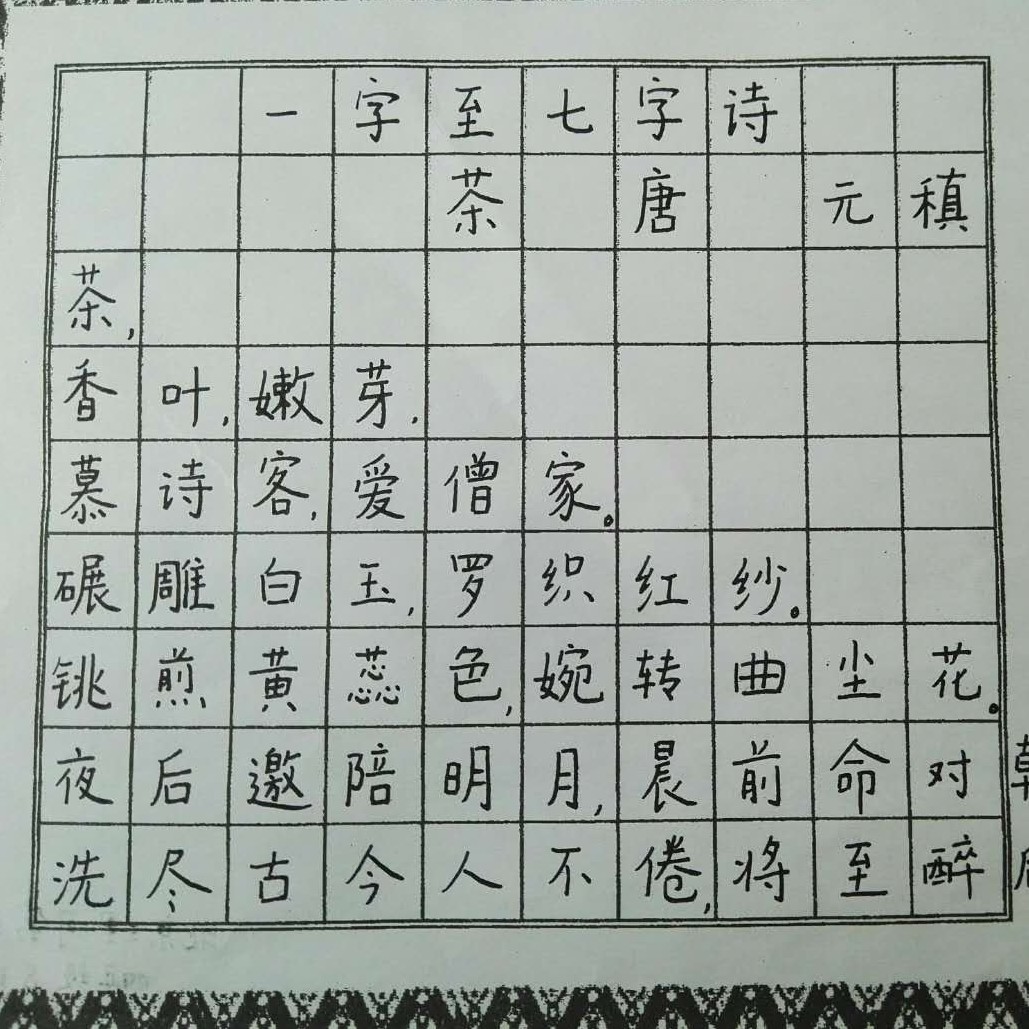 一字至七字诗
茶 唐 元稹
茶,
香叶,嫩芽,
慕诗客,爱僧家。
碾雕白玉,罗织红纱。
铫煎黄蕊色,婉转曲尘花。
夜后邀陪明月,晨前命对
洗尽古今人不倦,将至醉